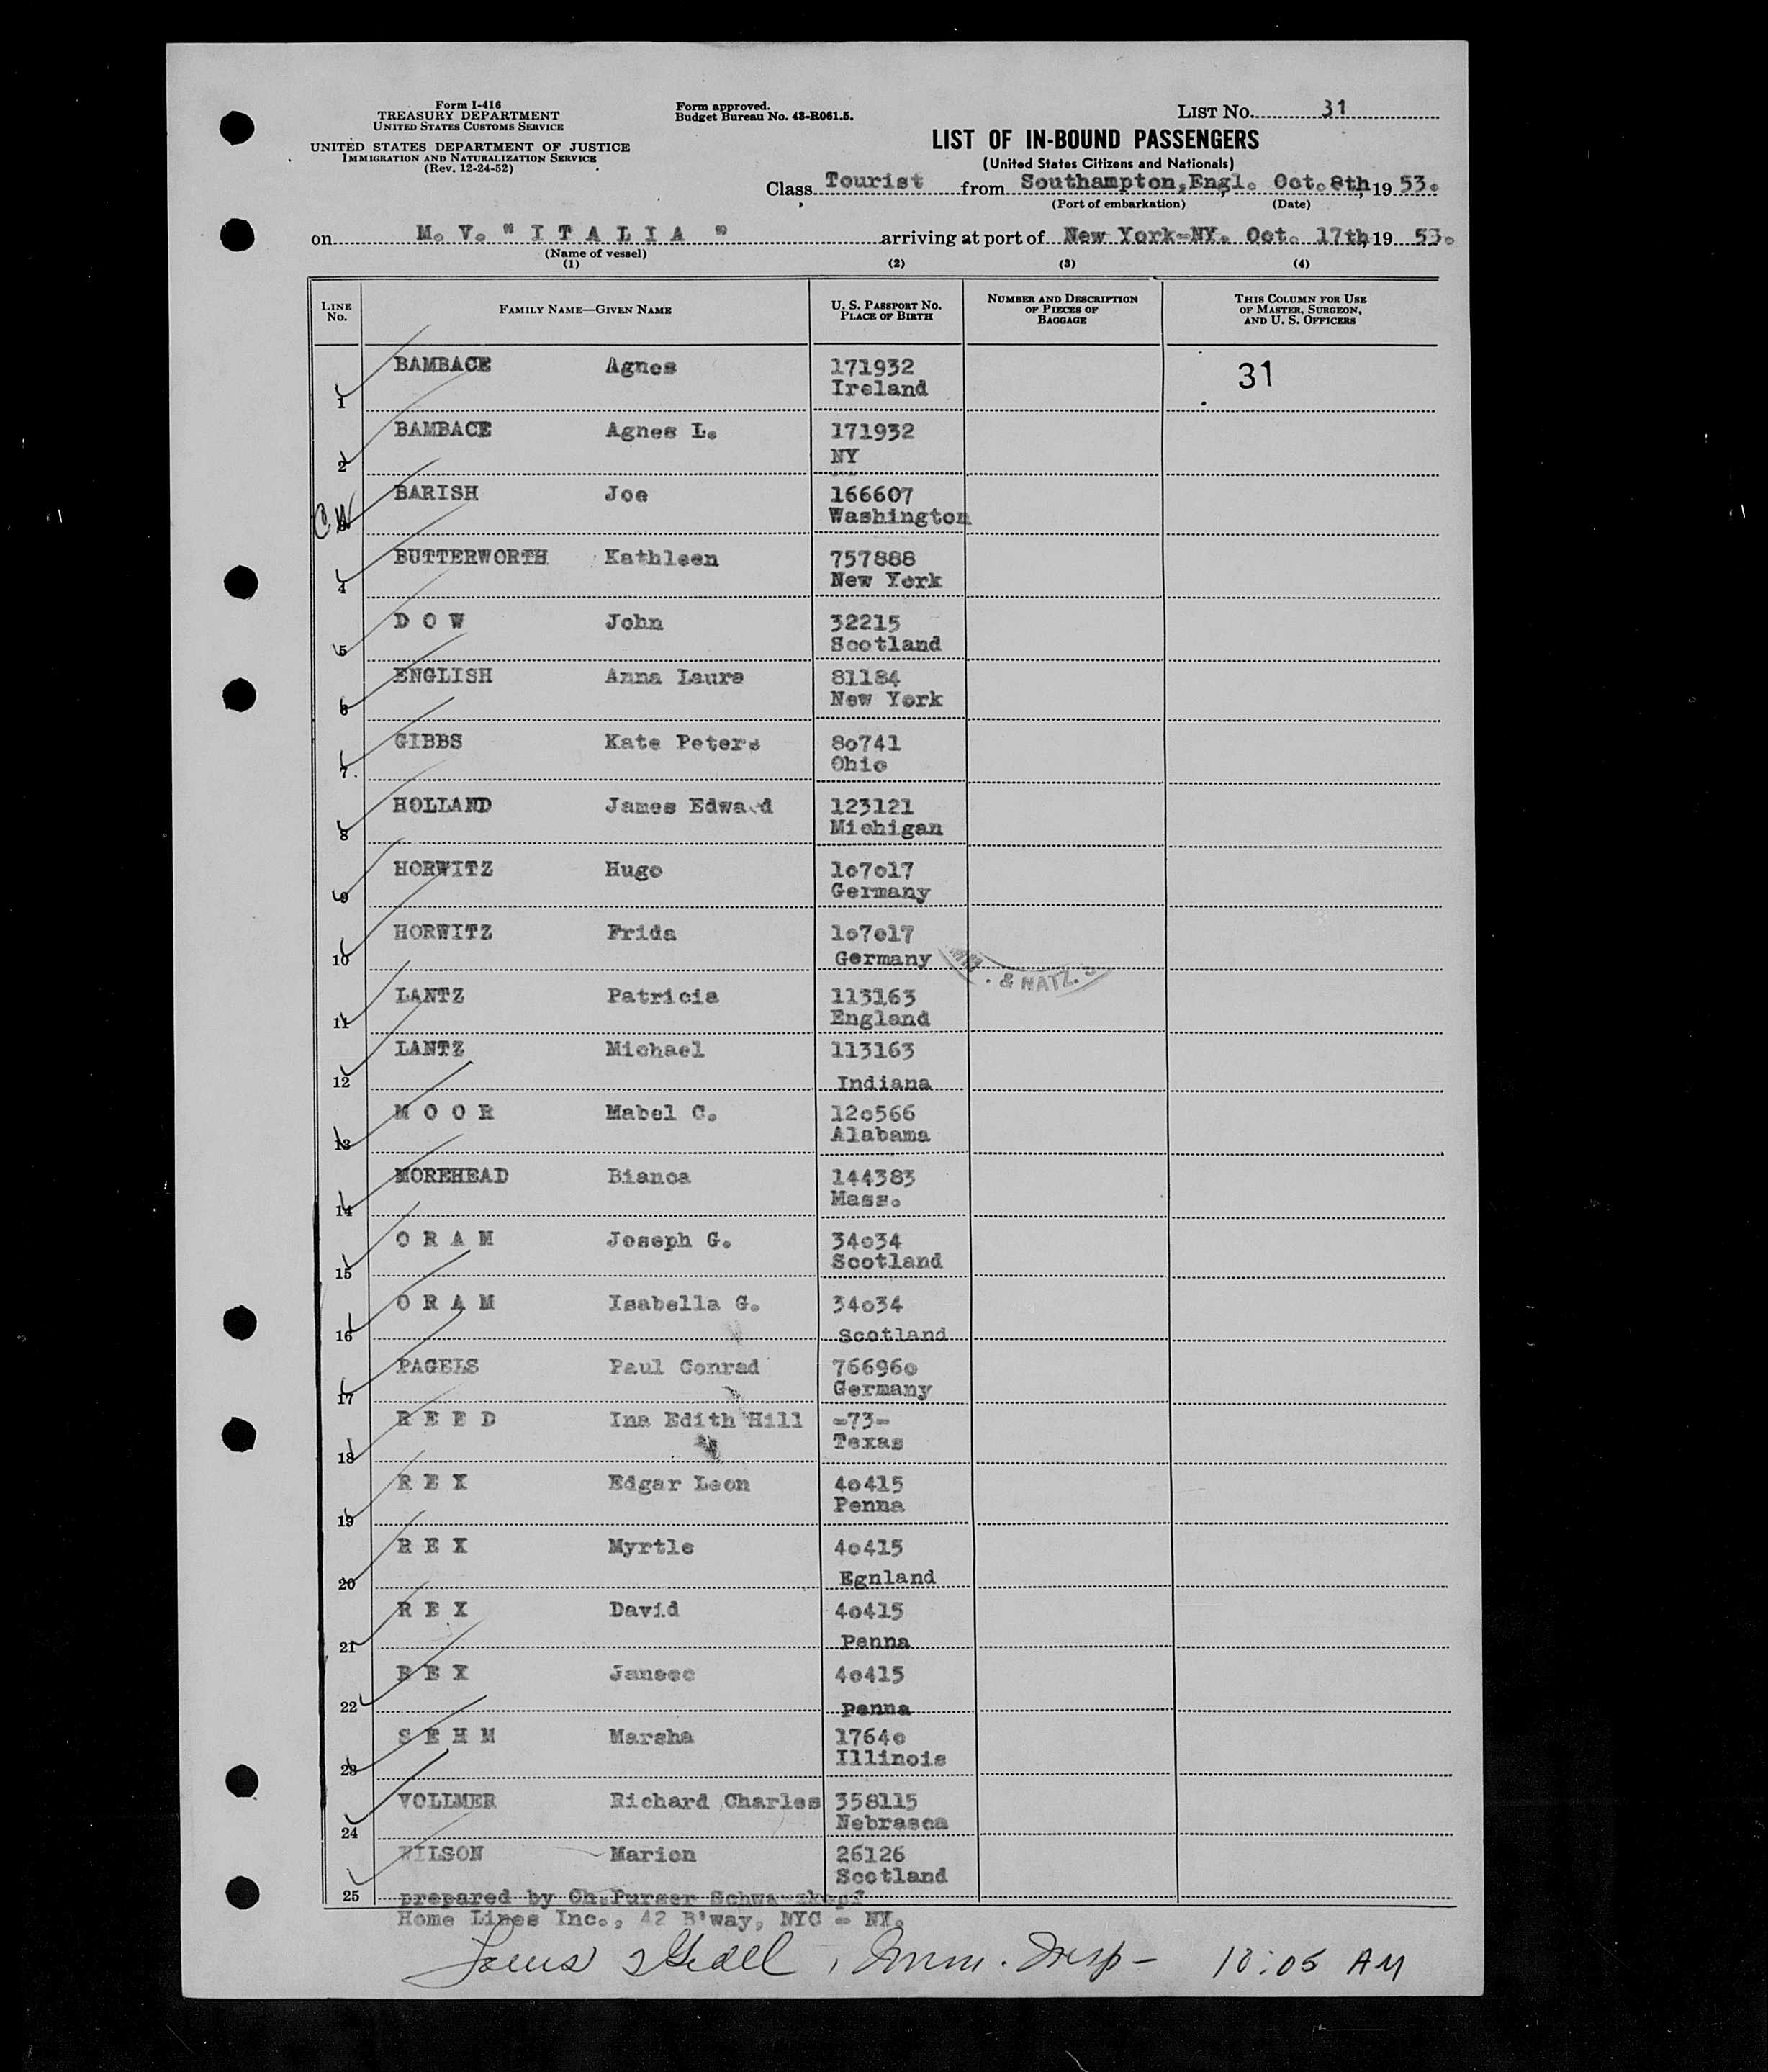 Form I-416
TREASURY DEPARTMENT
UNITED STATES CUSTOMS SERVICE
UNITED STATES DEPARTMENT OF JUSTICE
IMMIGRATION AND NATURALIZATION SERVICE
(Rev. 12-24-52)
Form approved.
Budget Bureau No. 43-R061.5.
LIST No. 31
LIST OF IN-BOUND PASSENGERS
(United States Citizens and Nationals)
Class Tourist from Southampton,Engl. Oct.8th, 19 53.
(Port of embarkation) (Date)
on M. V. "I T A L I A " arriving at port of New York-NY. Oct. 17th, 19 53.
(Name of vessel)
(1) (2) (3) (4)
LINE No. FAMILY NAME—GIVEN NAME U. S. PASSPORT NO. PLACE OF BIRTH NUMBER AND DESCRIPTION OF PIECES OF BAGGAGE THIS COLUMN FOR USE OF MASTER, SURGEON, AND U. S. OFFICERS
1 BAMBACE Agnes 171932 31
Ireland
2 BAMBACE Agnes L. 171932
NY
3 BARISH Joe 166607
Washington
4 BUTTERWORTH Kathleen 757888
New York
5 D O W John 32215
Scotland
6 ENGLISH Anna Laura 81184
New York
7. GIBBS Kate Peters 8o741
Ohio
8 HOLLAND James Edward 123121
Michigan
9 HORWITZ Hugo 1o7o17
Germany
10 HORWITZ Frida 1o7o17
Germany
. & NATZ.
11 LANTZ Patricia 113163
England
12 LANTZ Michael 113163
Indiana
13 M O O R Mabel C. 12o566
Alabama
14 MOREHEAD Bianca 144383
Mass.
15 O R A M Joseph G. 34o34
Scotland
16 O R A M Isabella G. 34o34
Scotland
17 PAGELS Paul Conrad 76696o
Germany
18 R E E D Ina Edith Hill -73-
Texas
19 R E X Edgar Leon 4o415
Penna
20 R E X Myrtle 4o415
Egnland
21 R E X David 4o415
Penna
22 R E X Janeec 4o415
Penna
23 S E H M Marsha 1764o
Illinois
24 VOLLMER Richard Charles 358115
Nebrasca
25 WILSON Marion 26126
Scotland
prepared by Ch.Purser Schwarzkopf
Home Lines Inc., 42 B'way, NYC - NY.
Louis , Imm. Insp- 10:05 AM